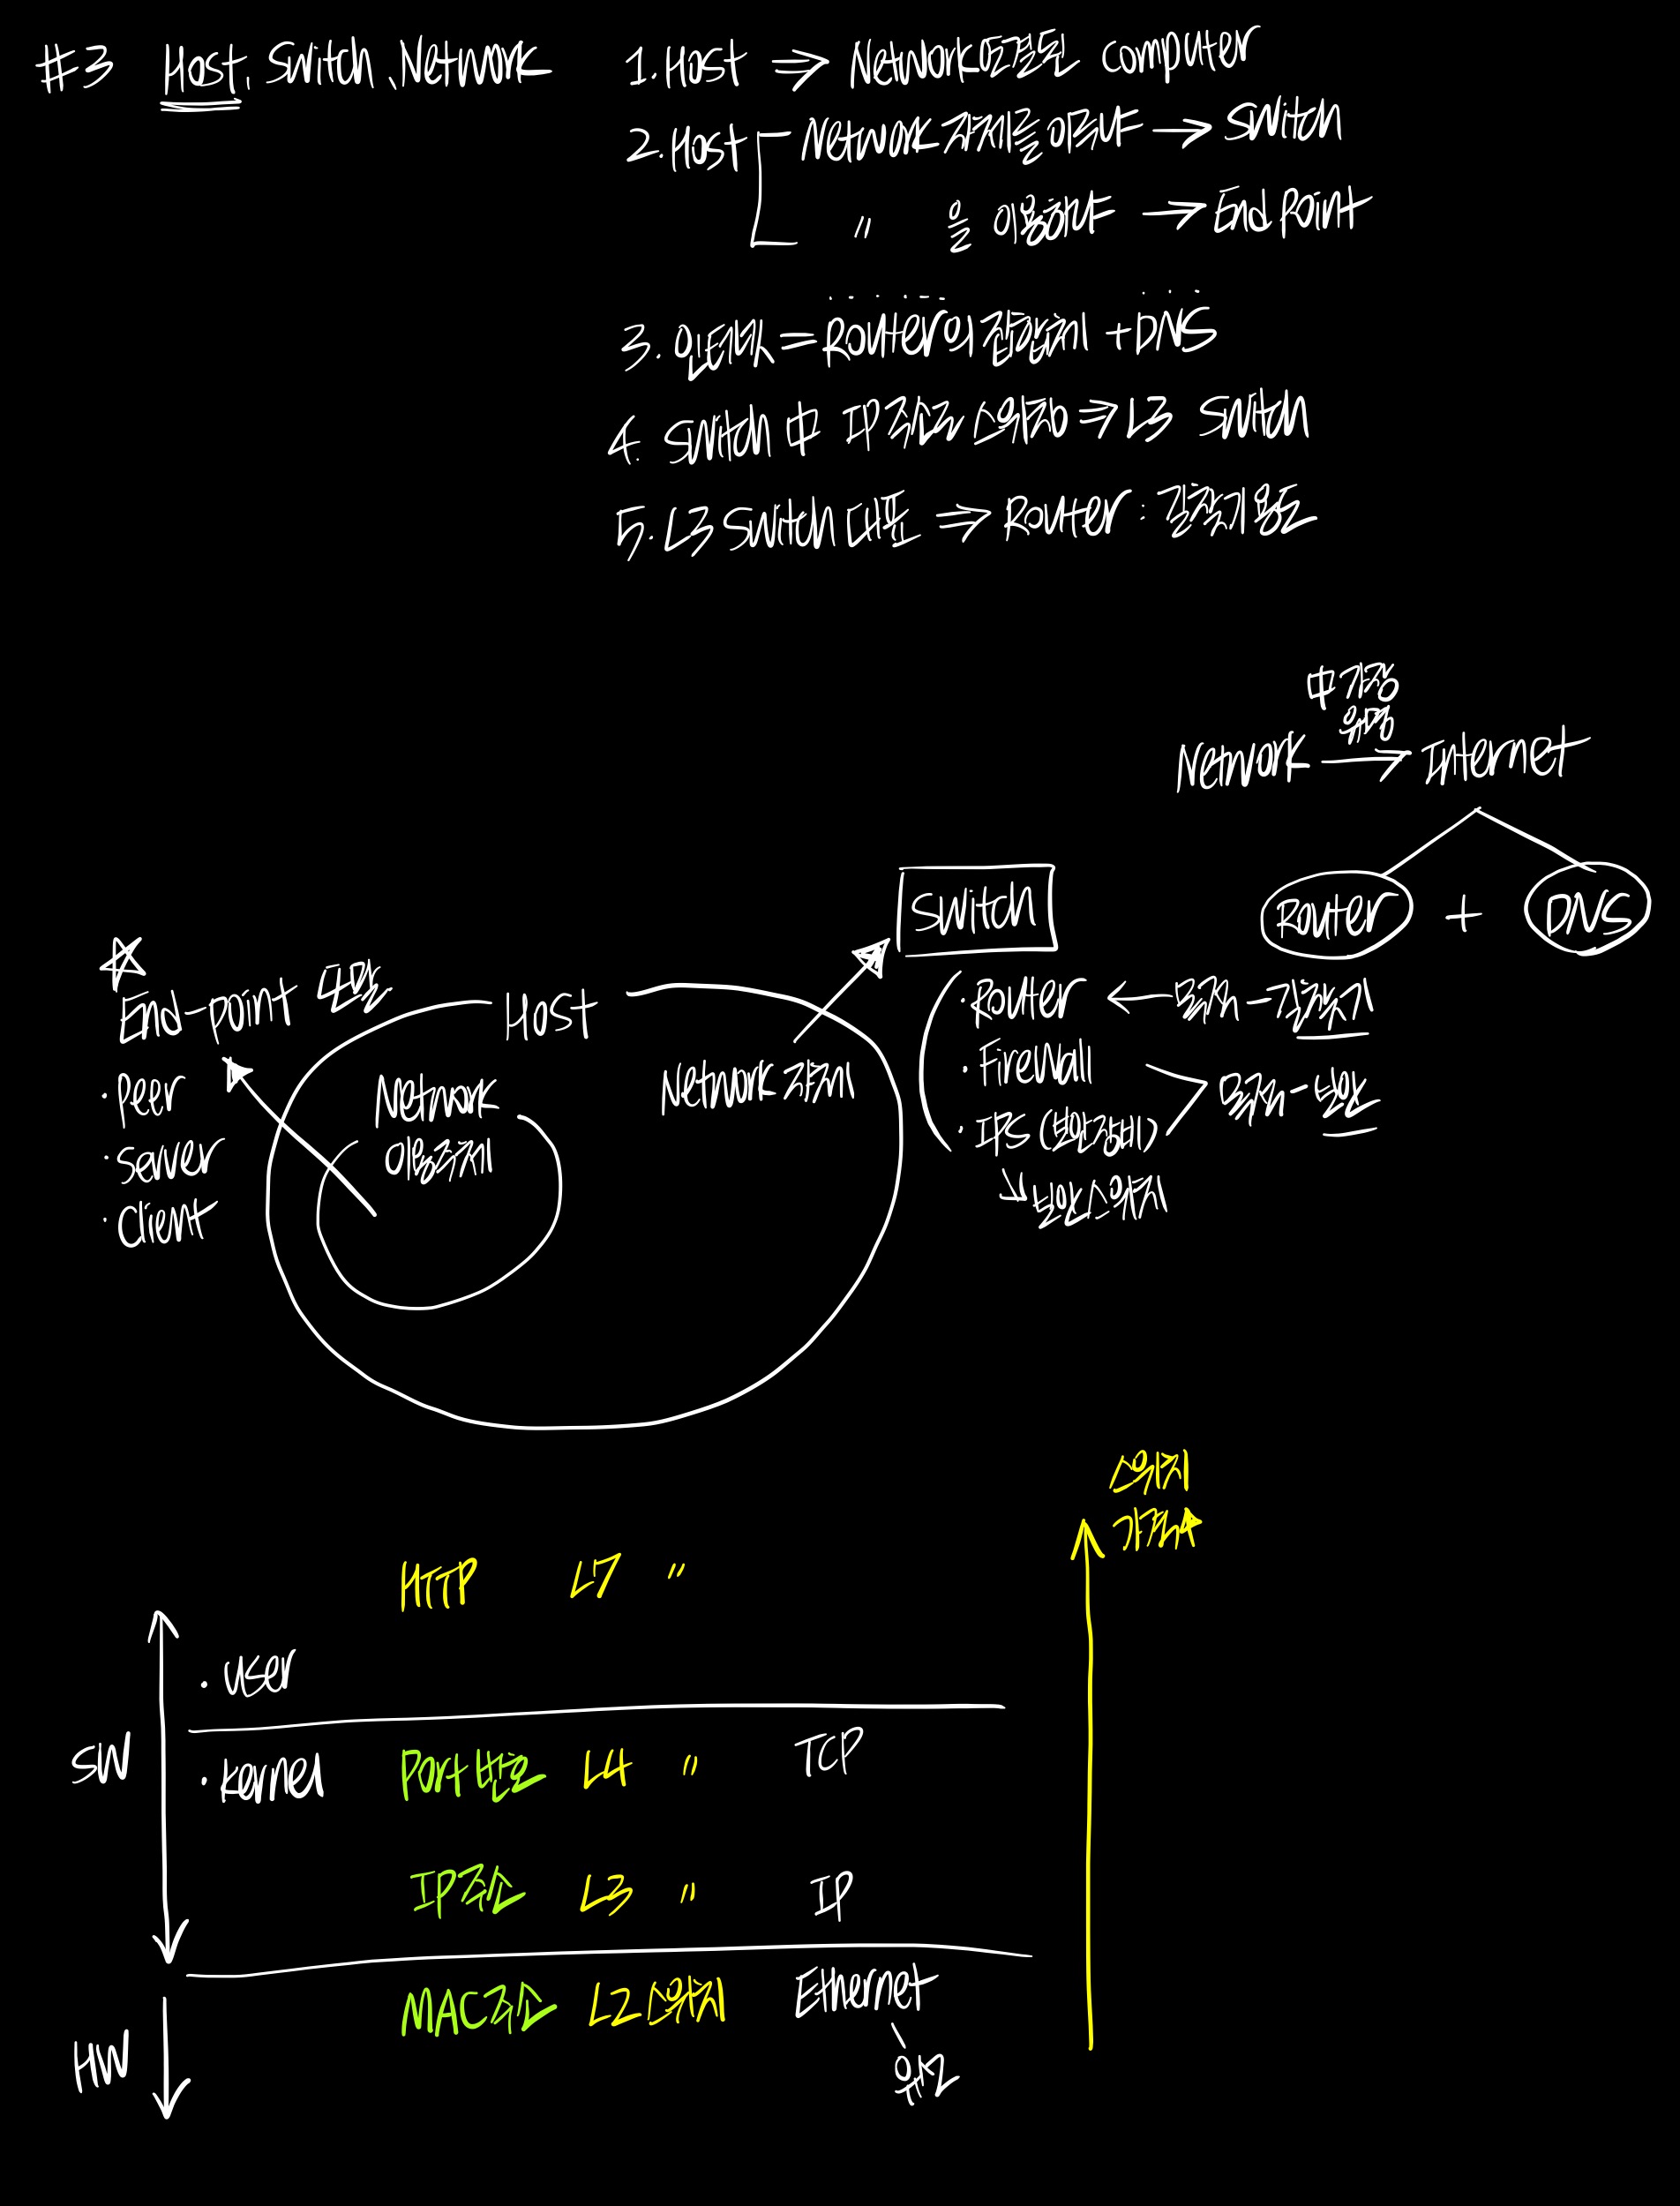 #3 Host, Switch, Network
1. Host ⇒ Network에 연결된 computer
2. Host Network 자체를 이루냐 → Switch
〃 을 이용하냐 → End Point
3. 인터넷 = Router의 집합체 + DNS
4. Switch 中 IP 주소로 스위칭 ⇒ L3 Switch
5. L3 Switch 대표 ⇒ Router : 길찾기 용도
中 가장
유명
Network → Internet
Router + DNS
Switch
· Router ← 목적 - 길찾기
· Firewall
· IPS (보안장비)
목적 - 보안
보안스위치
☆
End-point
· Peer
· server
· client
Host
Network
이용주체
Network 자체
스위치
가격
HTTP L7 〃
· user
SW
· kernel Port 번호 L4 〃 TCP
IP주소 L3 〃 IP
HW
MAC주소 L2 스위치 Ethernet